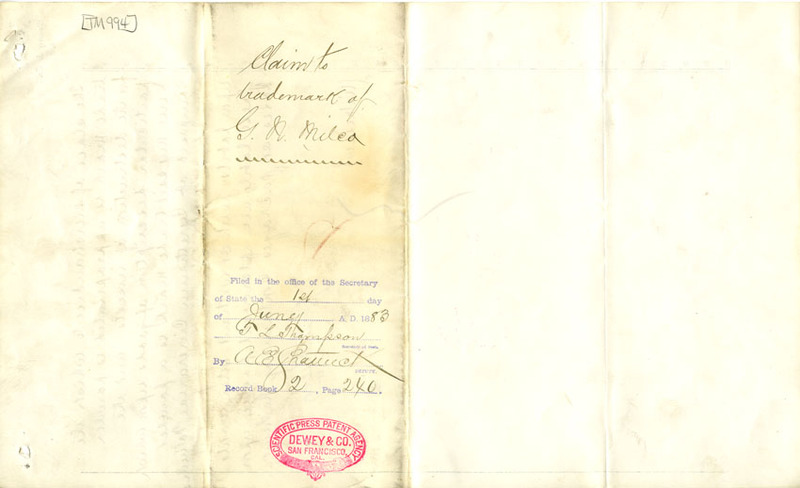 [TM994]
Claim to
trademark of
G. N. Milco
Filed in the office of the Secretary
of State the 1st day
of June A. D. 1883
T L Thompson
Secretary of State.
By A E Shattuck
DEPUTY.
Record Book 2, Page 240.
SCIENTIFIC PRESS PATENT AGENCY
DEWEY & CO.
SAN FRANCISCO,
CAL.